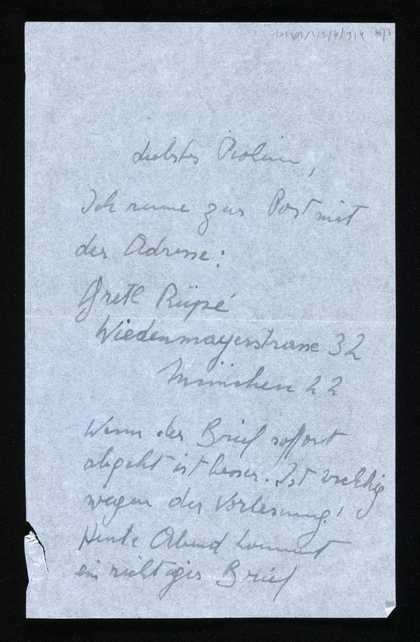 Liebstes
Ich renne zur Post mit
der Adresse:
Gretl Rüpé
Wiedenmayerstrasse 32
München 22
Wenn der Brief soffort
abgeht ist besser. Ist wichtig
wegen der Vorlesung!
Heute Abend kommt
ein richtiger Brief